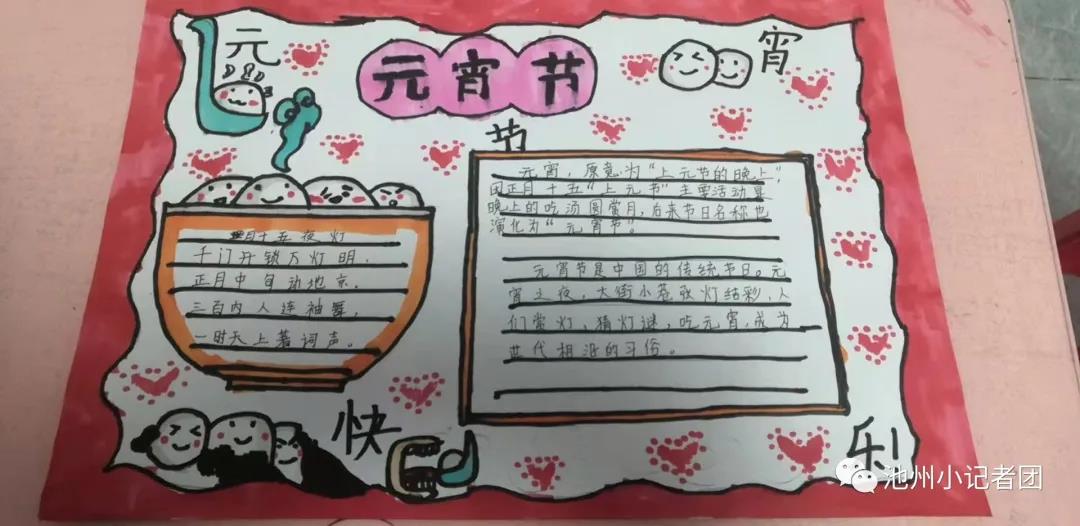 元
元宵节
宵
节
元宵，原意为"上元节的晚上"，
因正月十五"上元节"主要活动是
晚上的吃汤圆赏月，后来节日名称也
演化为"元宵节"。
元宵节是中国的传统节日。元
宵之夜，大街小巷张灯结彩，人
们赏灯，猜灯谜，吃元宵，成为
世代相沿的习俗。
月十五夜灯
千门开锁万灯明，
正月中旬动地京。
三百内人连袖舞，
一时天上著词声。
快
乐
池州小记者团